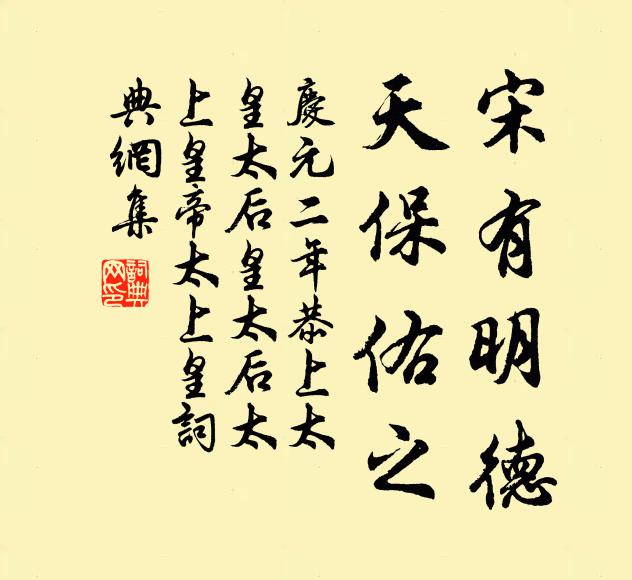 宋有明德
天保佑之
慶元二年恭上太
皇太后皇太后太
上皇帝太上皇詞
典網集
詞典網印